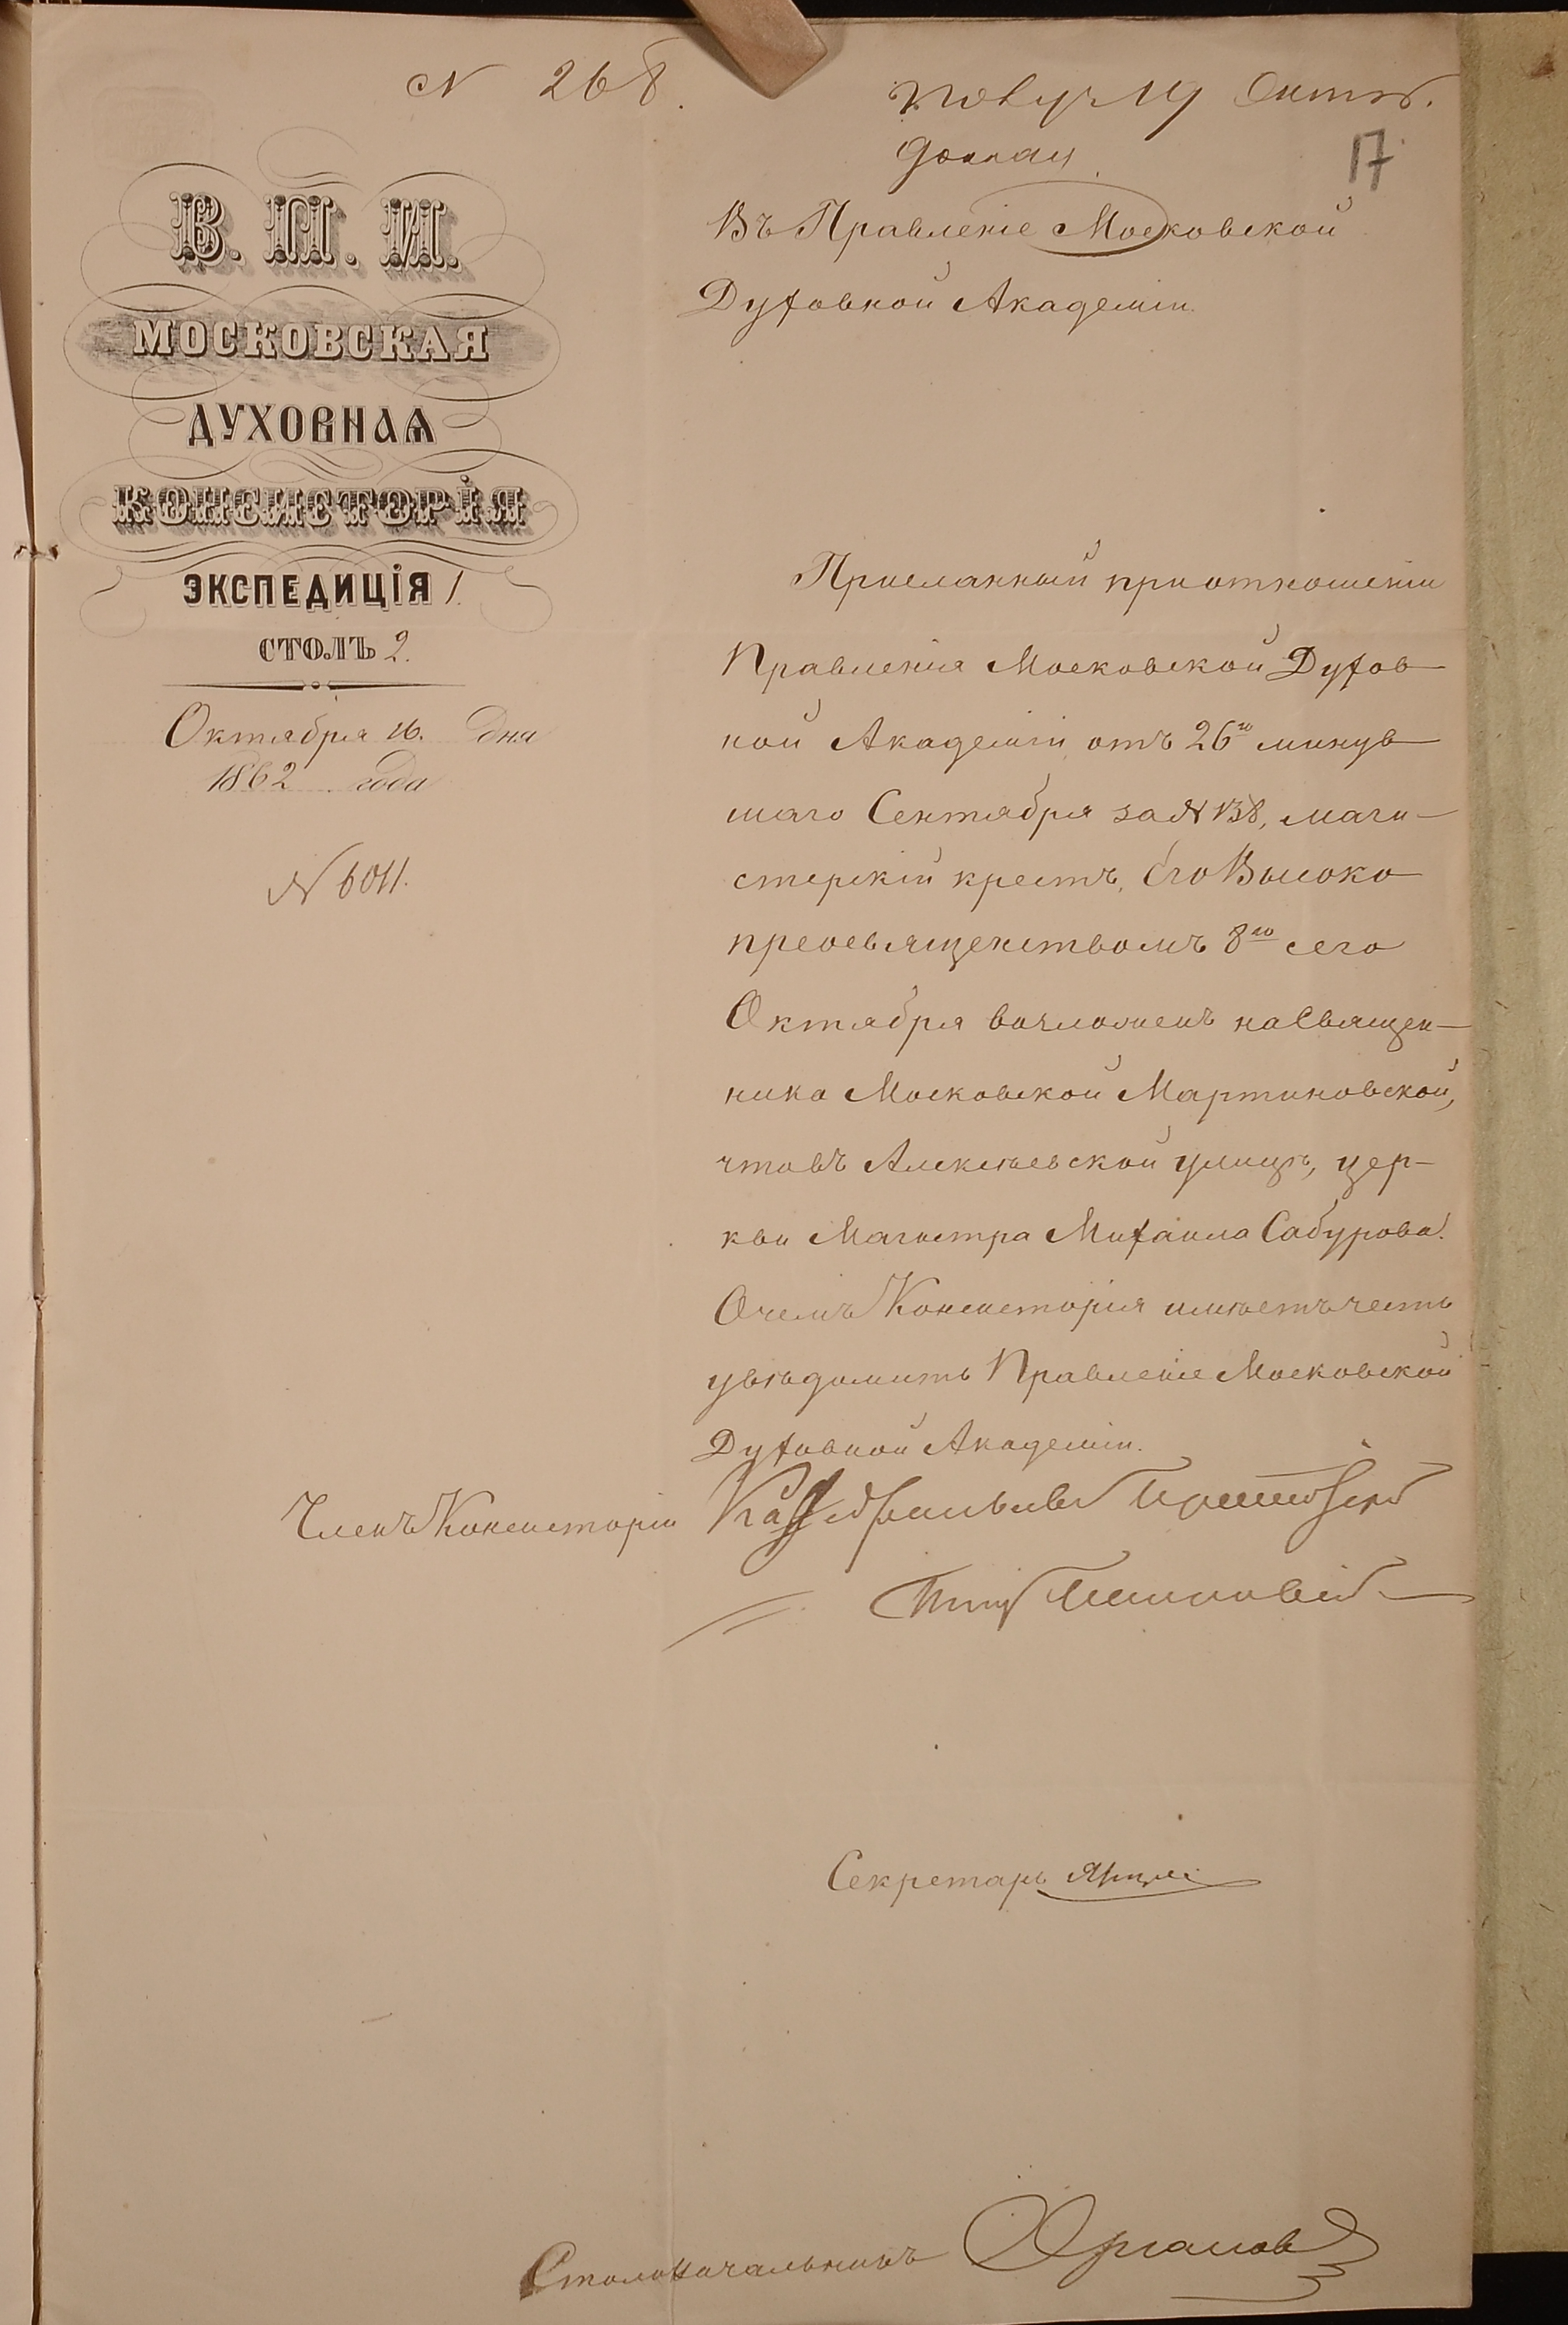 N 268.
Получ 19 Октяб.
Доклад
17
Въ Правленіе Московской
Духовной Академіи.
В. П. И.
МОСКОВСКАЯ
ДУХОВНАЯ
КОНСИСТОРІЯ
ЭКСПЕДИЦІЯ 1.
СТОЛЪ 2.
Октября 16. дня
1862 года
N 6011.
Присланный при отношеніи
Правленія Московской Духов-
ной Академіи отъ 26го минув-
шаго Сентября за N 138, маги-
стерскій крестъ, Его Высоко-
преосвященствомъ 8го сего
Октября возложенъ на Священ-
ника Московской Мартиновской,
что въ Алексѣевской улицѣ, цер-
кви Магистра Михаила Сабурова.
О чемъ Консисторія имѣетъ честь
увѣдомить Правленіе Московской
Духовной Академіи.
Членъ Консисторіи Каѳедральный Протоіерей
Секретарь
Столоначальникъ